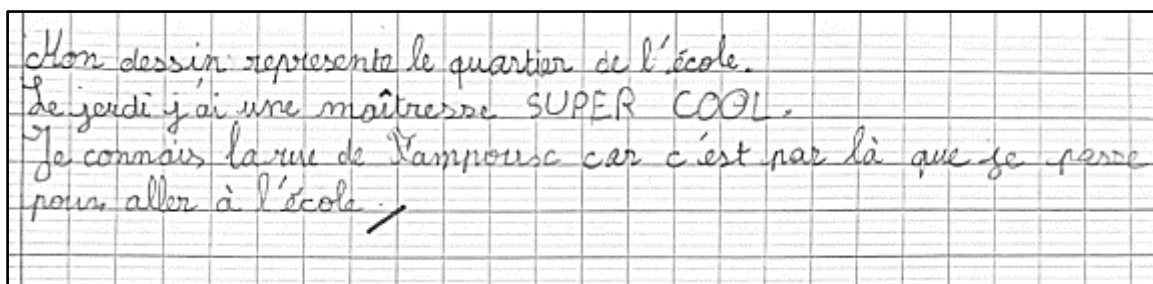 Mon dessin represente le quartier de l'école.
Le jeudi j'ai une maîtresse SUPER COOL.
Je connais la rue de car c'est par là que je passe
pour aller à l'école.